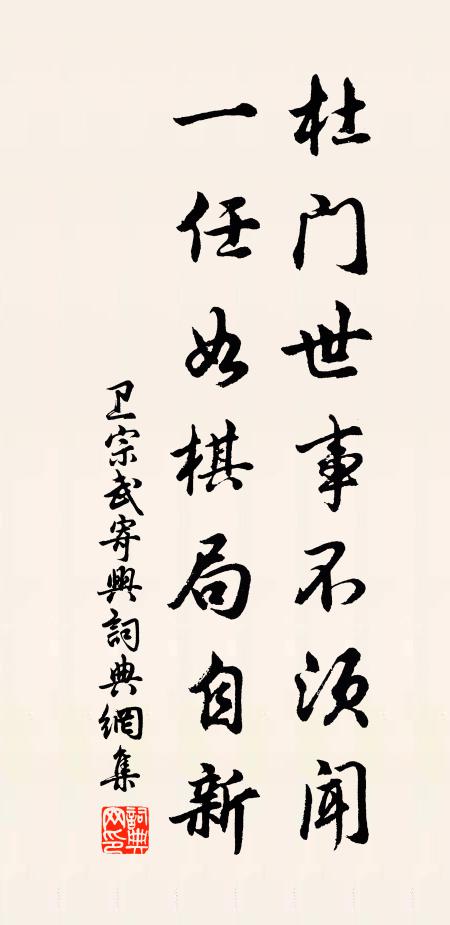 杜门世事不须闻
一任如棋局自新
卫宗武寄興詞典網集
詞典
网印